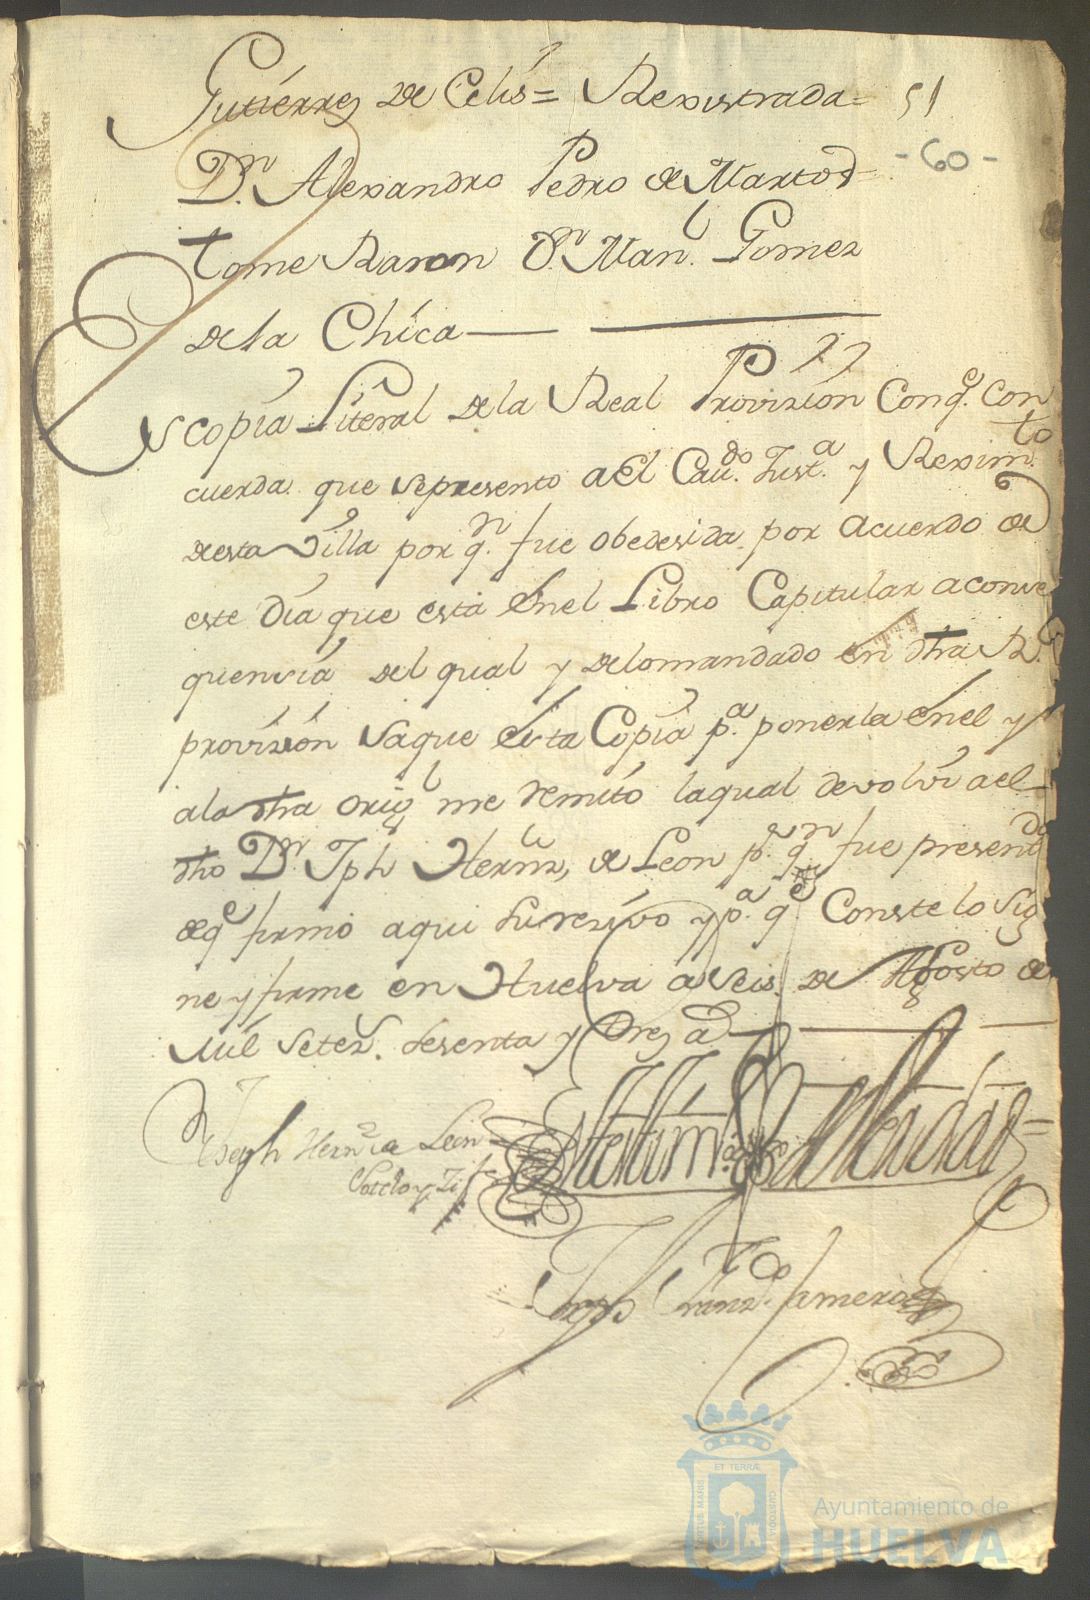 Gutierrez de Celis = Rexistrada = 51
Dn. Alexandro Pedro de Martos = - 60 -
tome Razon Dn. Manl. Gomez
de la Chica
Es copia Literal de la Real Provision Conqe. Con
cuerda que sepresento a El Cavdo. Justa. y Reximto
desta Villa por qn. fue obedesida por acuerdo de
este dia que esta Enel Libro Capitular aconse
quensia del qual y delomandado en dha Rl.
provision saque Esta Copia pa. ponerla Enel y
ala dha origl me remito laqual devolvi ael
dho Dn. Jph Hernz, de Leon pr. qn fue presentda
deqe firmo aqui su resivo y pa. qe Conste lo sig
ne y firme en Huelva a Seis de Agosto de
Mil Setez. sesenta y tres as
Joseph Hernz de Leon
Sotelo y
En testimo. de Verdad =
Jorge Franzco.
ET TERRAE
PORTUS MARIS
CUSTODIA
Ayuntamiento de
HUELVA